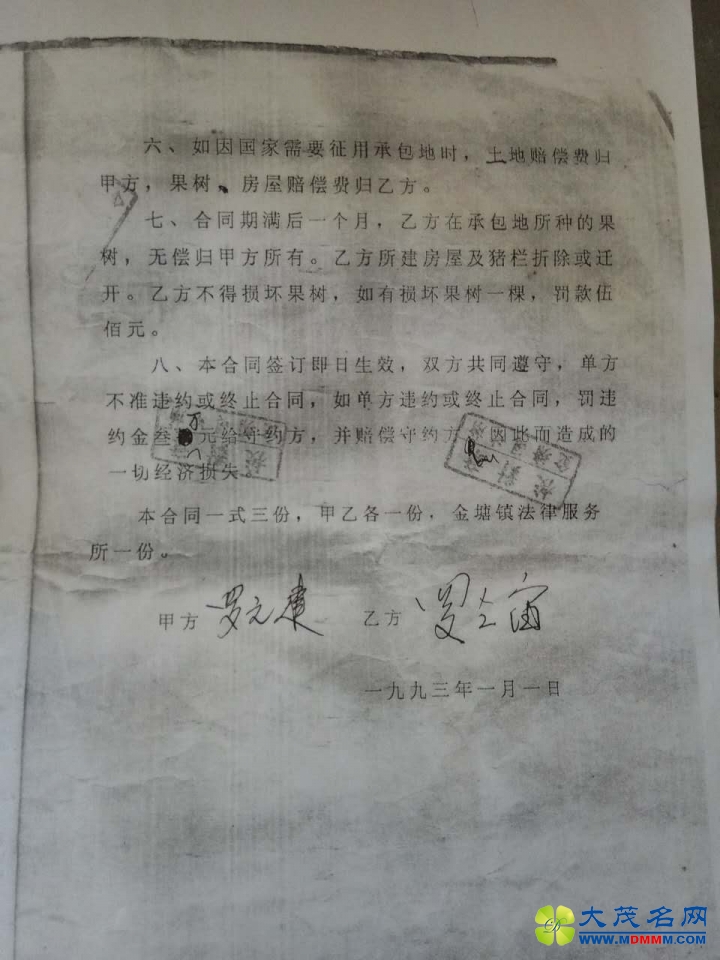 六、如因国家需要征用承包地时，土地赔偿费归
甲方，果树、房屋赔偿费归乙方。
七、合同期满后一个月，乙方在承包地所种的果
树，无偿归甲方所有。乙方所建房屋及猪栏折除或迁
开。乙方不得损坏果树，如有损坏果树一棵，罚款伍
佰元。
八、本合同签订即日生效，双方共同遵守，单方
不准违约或终止合同，如单方违约或终止合同，罚违
约金叁万元给守约方，并赔偿守约方因此而造成的
一切经济损失
本合同一式三份，甲乙各一份，金塘镇法律服务
所一份。
甲方 乙方
一九九三年一月一日
大茂名网
WWW.MDMMM.COM